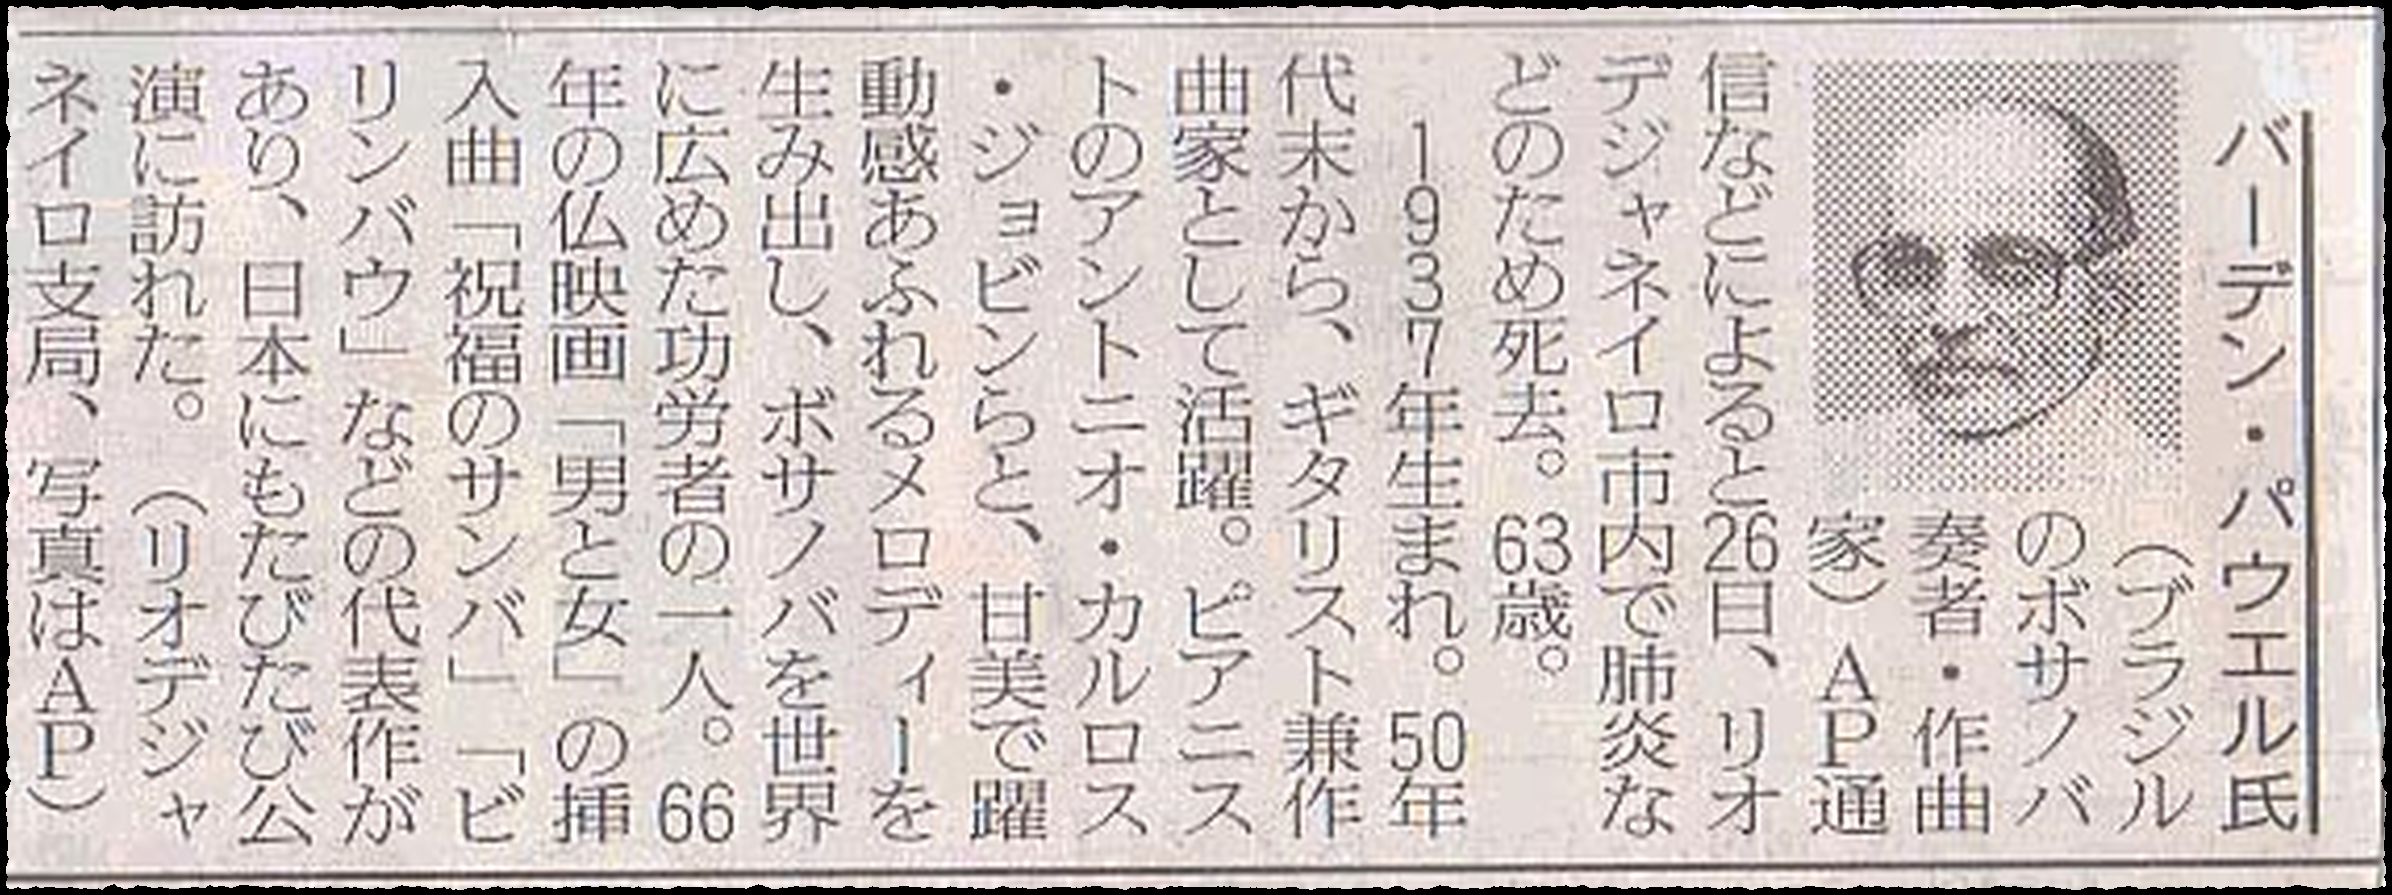 バーデン・パウエル氏
（ブラジル
のボサノバ
奏者・作曲
家）ＡＰ通
信などによると26日、リオ
デジャネイロ市内で肺炎な
どのため死去。63歳。
１９３７年生まれ。50年
代末から、ギタリスト兼作
曲家として活躍。ピアニス
トのアントニオ・カルロス
・ジョビンらと、甘美で躍
動感あふれるメロディーを
生み出し、ボサノバを世界
に広めた功労者の一人。66
年の仏映画「男と女」の挿
入曲「祝福のサンバ」「ビ
リンバウ」などの代表作が
あり、日本にもたびたび公
演に訪れた。（リオデジャ
ネイロ支局、写真はＡＰ）